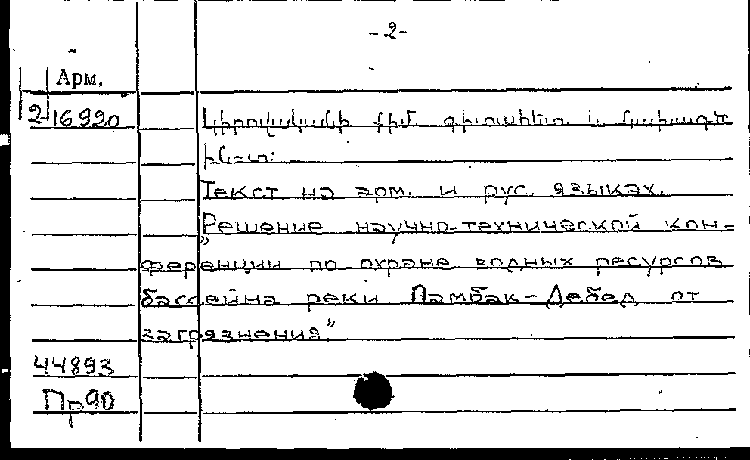 -2-
Арм.
2 16920 Կիրովականի ֆիլ. գիտահետ. և նախագծ
ինստ:
Текст на арм. и рус. языках.
„Решение научно-технической кон-
ференции по охране водных ресурсов
бассейна реки Памбак-Дебед от
загрязнения“
44893
Пр90